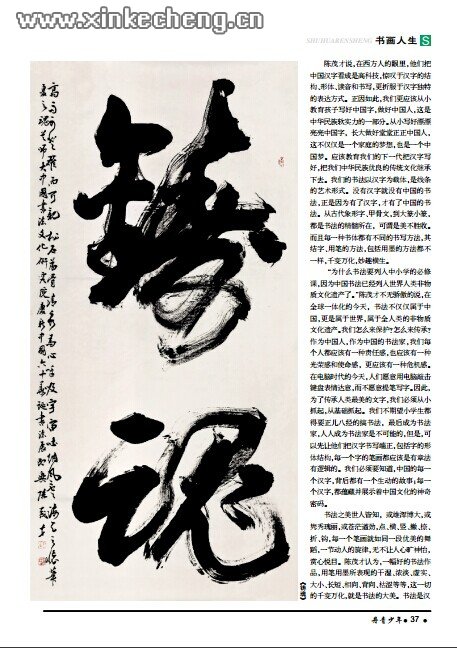 www.xinkecheng.cn
SHUHUARENSHENG 书画人生 S
陈茂才说，在西方人的眼里，他们把
中国汉字看成是高科技，惊叹于汉字的结
构、形体、读音和书写，更折服于汉字独特
的表达方式。正因如此，我们更应该从小
教育孩子写好中国字，做好中国人，这是
中华民族软实力的一部分。从小写好漂漂
亮亮中国字，长大做好堂堂正正中国人，
这不仅仅是一个家庭的梦想，也是一个中
国梦。应该教育我们的下一代把汉字写
好，把我们中华民族优良的传统文化继承
下去。我们的书法以汉字为载体，是线条
的艺术形式。没有汉字就没有中国的书
法，正是因为有了汉字，才有了中国的书
法。从古代象形字、甲骨文，到大篆小篆，
都是书法的精髓所在，可谓是美不胜收。
而且每一种书体都有不同的书写方法，其
结字、用笔的方法，包括用墨的方法都不
一样，千变万化，妙趣横生。
“为什么书法要列入中小学的必修
课，因为中国书法已经列入世界人类非物
质文化遗产了。”陈茂才不无骄傲的说，在
全球一体化的今天，书法不仅仅属于中
国，更是属于世界，属于全人类的非物质
文化遗产。我们怎么来保护？怎么来传承？
作为中国人，作为中国的书法家，我们每
个人都应该有一种责任感，也应该有一种
光荣感和使命感，更应该有一种危机感。
在电脑时代的今天，人们愿意用电脑敲击
键盘表情达意，而不愿意提笔写字。因此，
为了传承人类最美的文字，我们必须从小
抓起，从基础抓起。我们不期望小学生都
得要正儿八经的搞书法，最后成为书法
家，人人成为书法家是不可能的，但是，可
以先让他们把汉字书写端正，包括字的形
体结构，每一个字的笔画都应该是有章法
有逻辑的。我们必须要知道，中国的每一
个汉字，背后都有一个生动的故事；每一
个汉字，都蕴藏并展示着中国文化的神奇
密码。
书法之美世人皆知，或雄浑博大，或
隽秀瑰丽，或苍茫遒劲，点、横、竖、撇、捺、
折、钩，每一个笔画就如同一段优美的舞
蹈，一节动人的旋律，无不让人心旷神怡，
赏心悦目。陈茂才认为，一幅好的书法作
品，用笔用墨所表现的干湿、浓淡、虚实、
大小、长短、相向、背向、枯湿等等，这一切
的千变万化，就是书法的大美。书法是汉
铸魂
《铸魂》
丹青少年 37